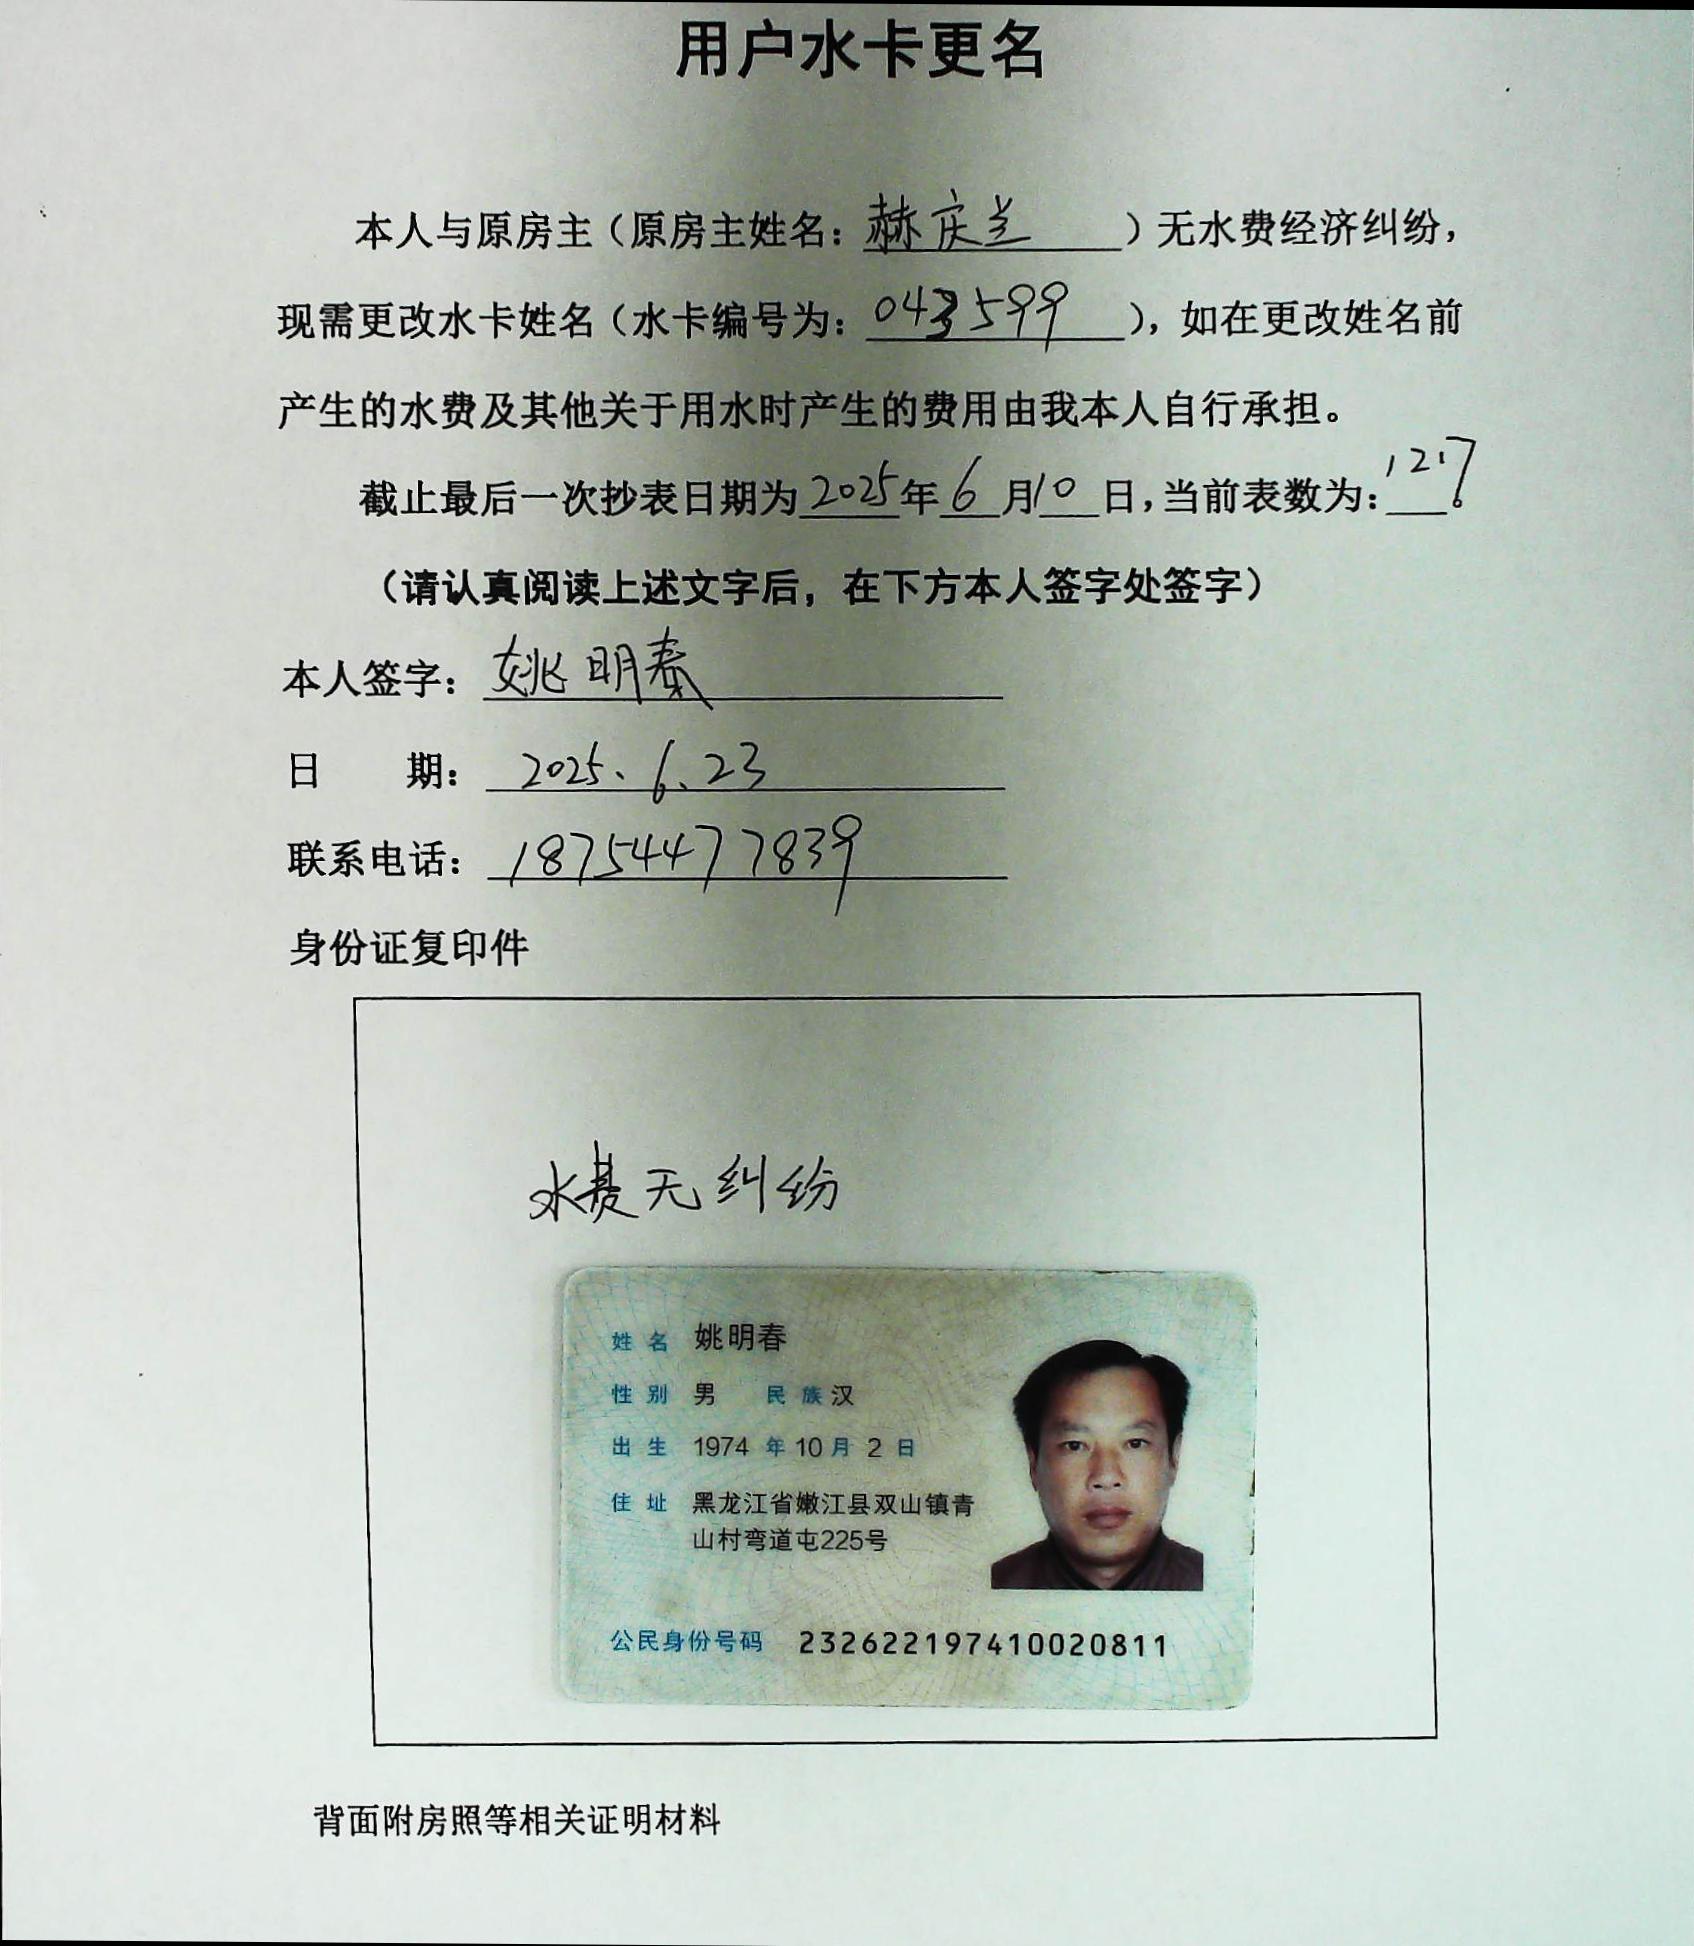 用户水卡更名
本人与原房主（原房主姓名：赫庆兰）无水费经济纠纷，
现需更改水卡姓名（水卡编号为：043599），如在更改姓名前
产生的水费及其他关于用水时产生的费用由我本人自行承担。
截止最后一次抄表日期为2025年6月10日，当前表数为：1217。
（请认真阅读上述文字后，在下方本人签字处签字）
本人签字：姚明春
日 期：2025、6、23
联系电话：18754477839
身份证复印件
水费无纠纷
姓名 姚明春
性别 男 民族 汉
出生 1974 年 10 月 2 日
住址 黑龙江省嫩江县双山镇青
山村弯道屯225号
公民身份号码 232622197410020811
背面附房照等相关证明材料